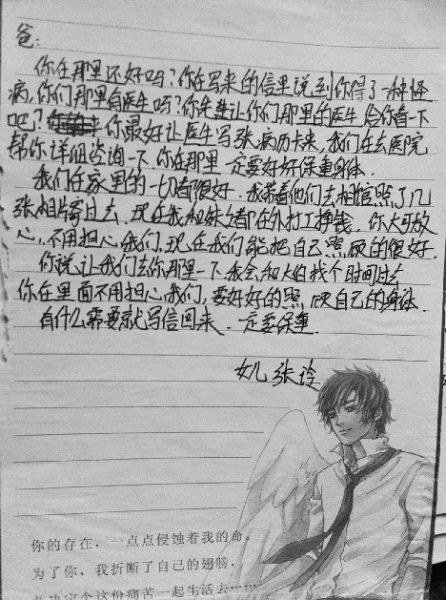 爸:
你在那里还好吗?你在写来的信里说到你得了一种怪
病,你们那里有医生吗?你先让你们那里的医生给你看一下
吧?你最好让医生写张病历卡来,我们在去医院
帮你详细咨询一下,你在那里一定要好好保重身体.
我们在家里的一切都很好.我带着他们去相馆照了几
张相片寄过去,现在我和妹都在外打工挣钱,你大可放
心,不用担心我们,现在我们能把自己照顾的很好.
你说让我们去你那里一下我会和大伯找个时间过去
你在里面不用担心我们,要好好的照顾自己的身体.
有什么需要就写信回来.一定要保重.
女儿 张玲
你的存在,一点点侵蚀着我的命。
为了你,我折断了自己的翅膀,
这份痛苦一起生活去……